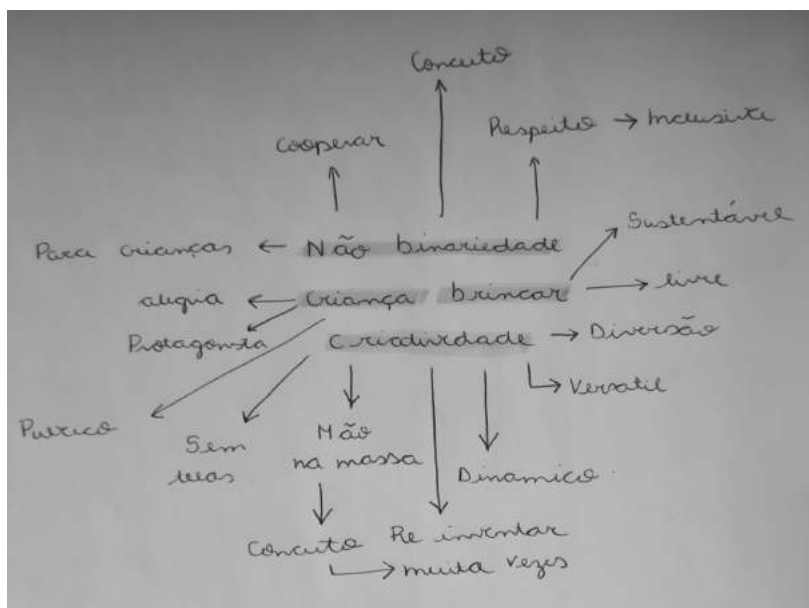 Conceito
Cooperar
Respeito → Inclusivte
Sustentável
Para crianças ← Não binariedade
alegria ← Criança brincar → livre
Protagonista
Criatividade → Diversão
Versatil
Publico
Sem telas
Mão
na massa
Dinamico
Conceito Re inventar
muita vezes